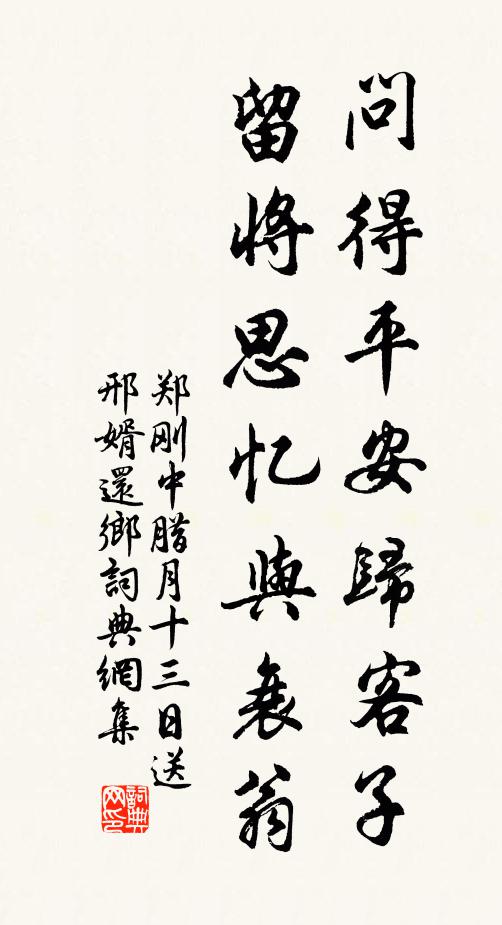 問得平安歸客子
留將思忆與衰翁
郑刚中腊月十三日送
邢婿還鄉詞典網集
詞典
网印